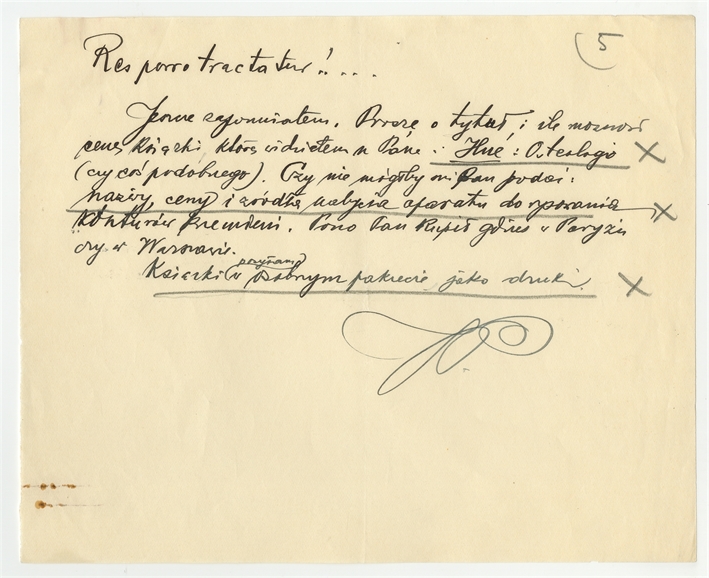 5
Res porro tractatur!....
Jeszcze zapomniałem. Proszę o tytuł, i ile możność
cenę książki, którą widziałem u Pana: Hue: Osteologie
(czy coś podobnego). Czy nie mógłby mi Pan podać:
nazwy, ceny i źródła nabycia aparatu do rysowania
konturów krzemieni. Pono Pan kupił gdzieś w Paryżu
czy w Warszawie.
Książki przysłane w osobnym pakiecie jako druki.